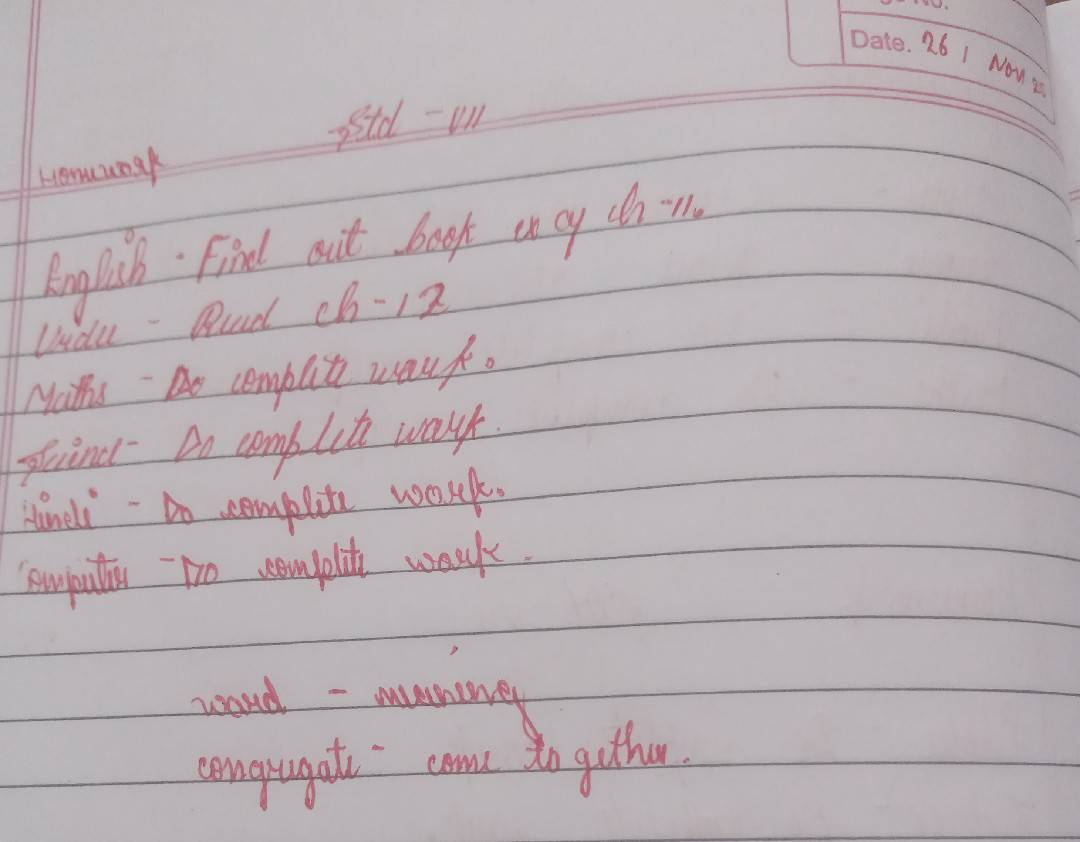 Date. 26 / Nov 25
Std - VII
Homework
English - Find out book ex cy ch - 11.
Urdu - Read ch - 12
Maths - Do complite work.
Science - Do complite work.
Hindi - Do complite work.
Computer - Do complite work.
word - meaning
congregate - come to gether.